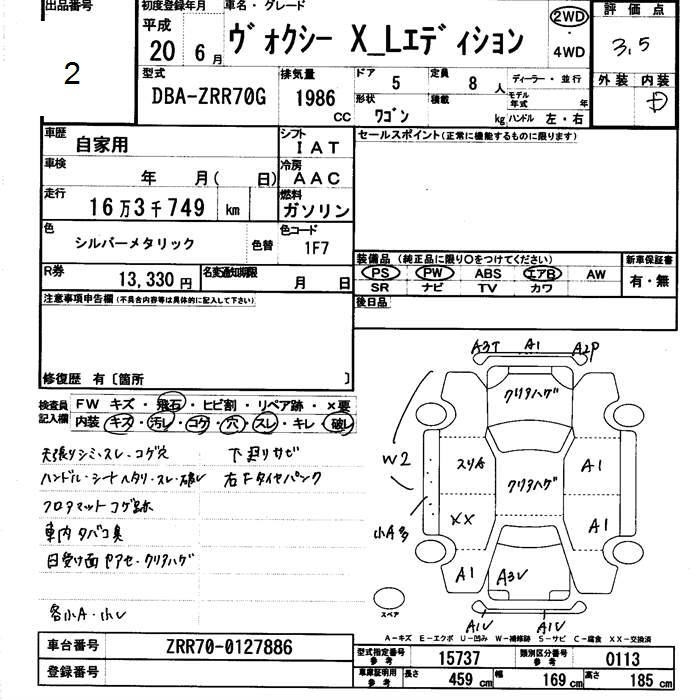 出品番号
2
初度登録年月
平成
20 6月
車名・グレード
ヴォクシー X_Lエディション
2WD
・
4WD
評価点
3.5
外装 内装
D
型式
DBA-ZRR70G
排気量
1986
CC
ドア 5
定員 8 人
形状 ワゴン
積載 kg
ディーラー・並行
モデル年式 年
ハンドル 左・右
車歴 自家用
シフト IAT
車検 年 月( 日)
冷房 AAC
走行 16万3千749 km
燃料 ガソリン
色 シルバーメタリック 色替
色コード 1F7
R券 13,330円
名変通知期限 月 日
セールスポイント(正常に機能するものに限ります)
装備品(純正品に限り〇をつけてください)
PS PW ABS エアB AW
SR ナビ TV カワ
新車保証書
有・無
後日品
注意事項申告欄(不具合内容等は具体的に記入して下さい)
修復歴 有〔箇所 〕
検査員記入欄
FW キズ・飛石・ヒビ割・リペア跡・×要
内装・キズ・汚レ・コゲ・穴・スレ・キレ・破レ
天張りシミ・スレ・コゲ穴 下廻りサビ
ハンドル・シートヘタリ・スレ・破レ 右Fタイヤパンク
フロアマットコゲ跡
車内タバコ臭
日受け面ヤケアセ・クリアハゲ
各小A・小レ
A3T A1 A2P
クリアハゲ
W2
スリA クリアハゲ A1
XX A1
小A多
A1 A3V
A1V A1V
スペア
A-キズ E-エクボ U-凹み W-補修跡 S-サビ C-腐食 XX-交換済
車台番号 ZRR70-0127886
登録番号
型式指定番号 参考 15737
類別区分番号 参考 0113
車庫証明用 参考 長さ 459 cm 幅 169 cm 高さ 185 cm